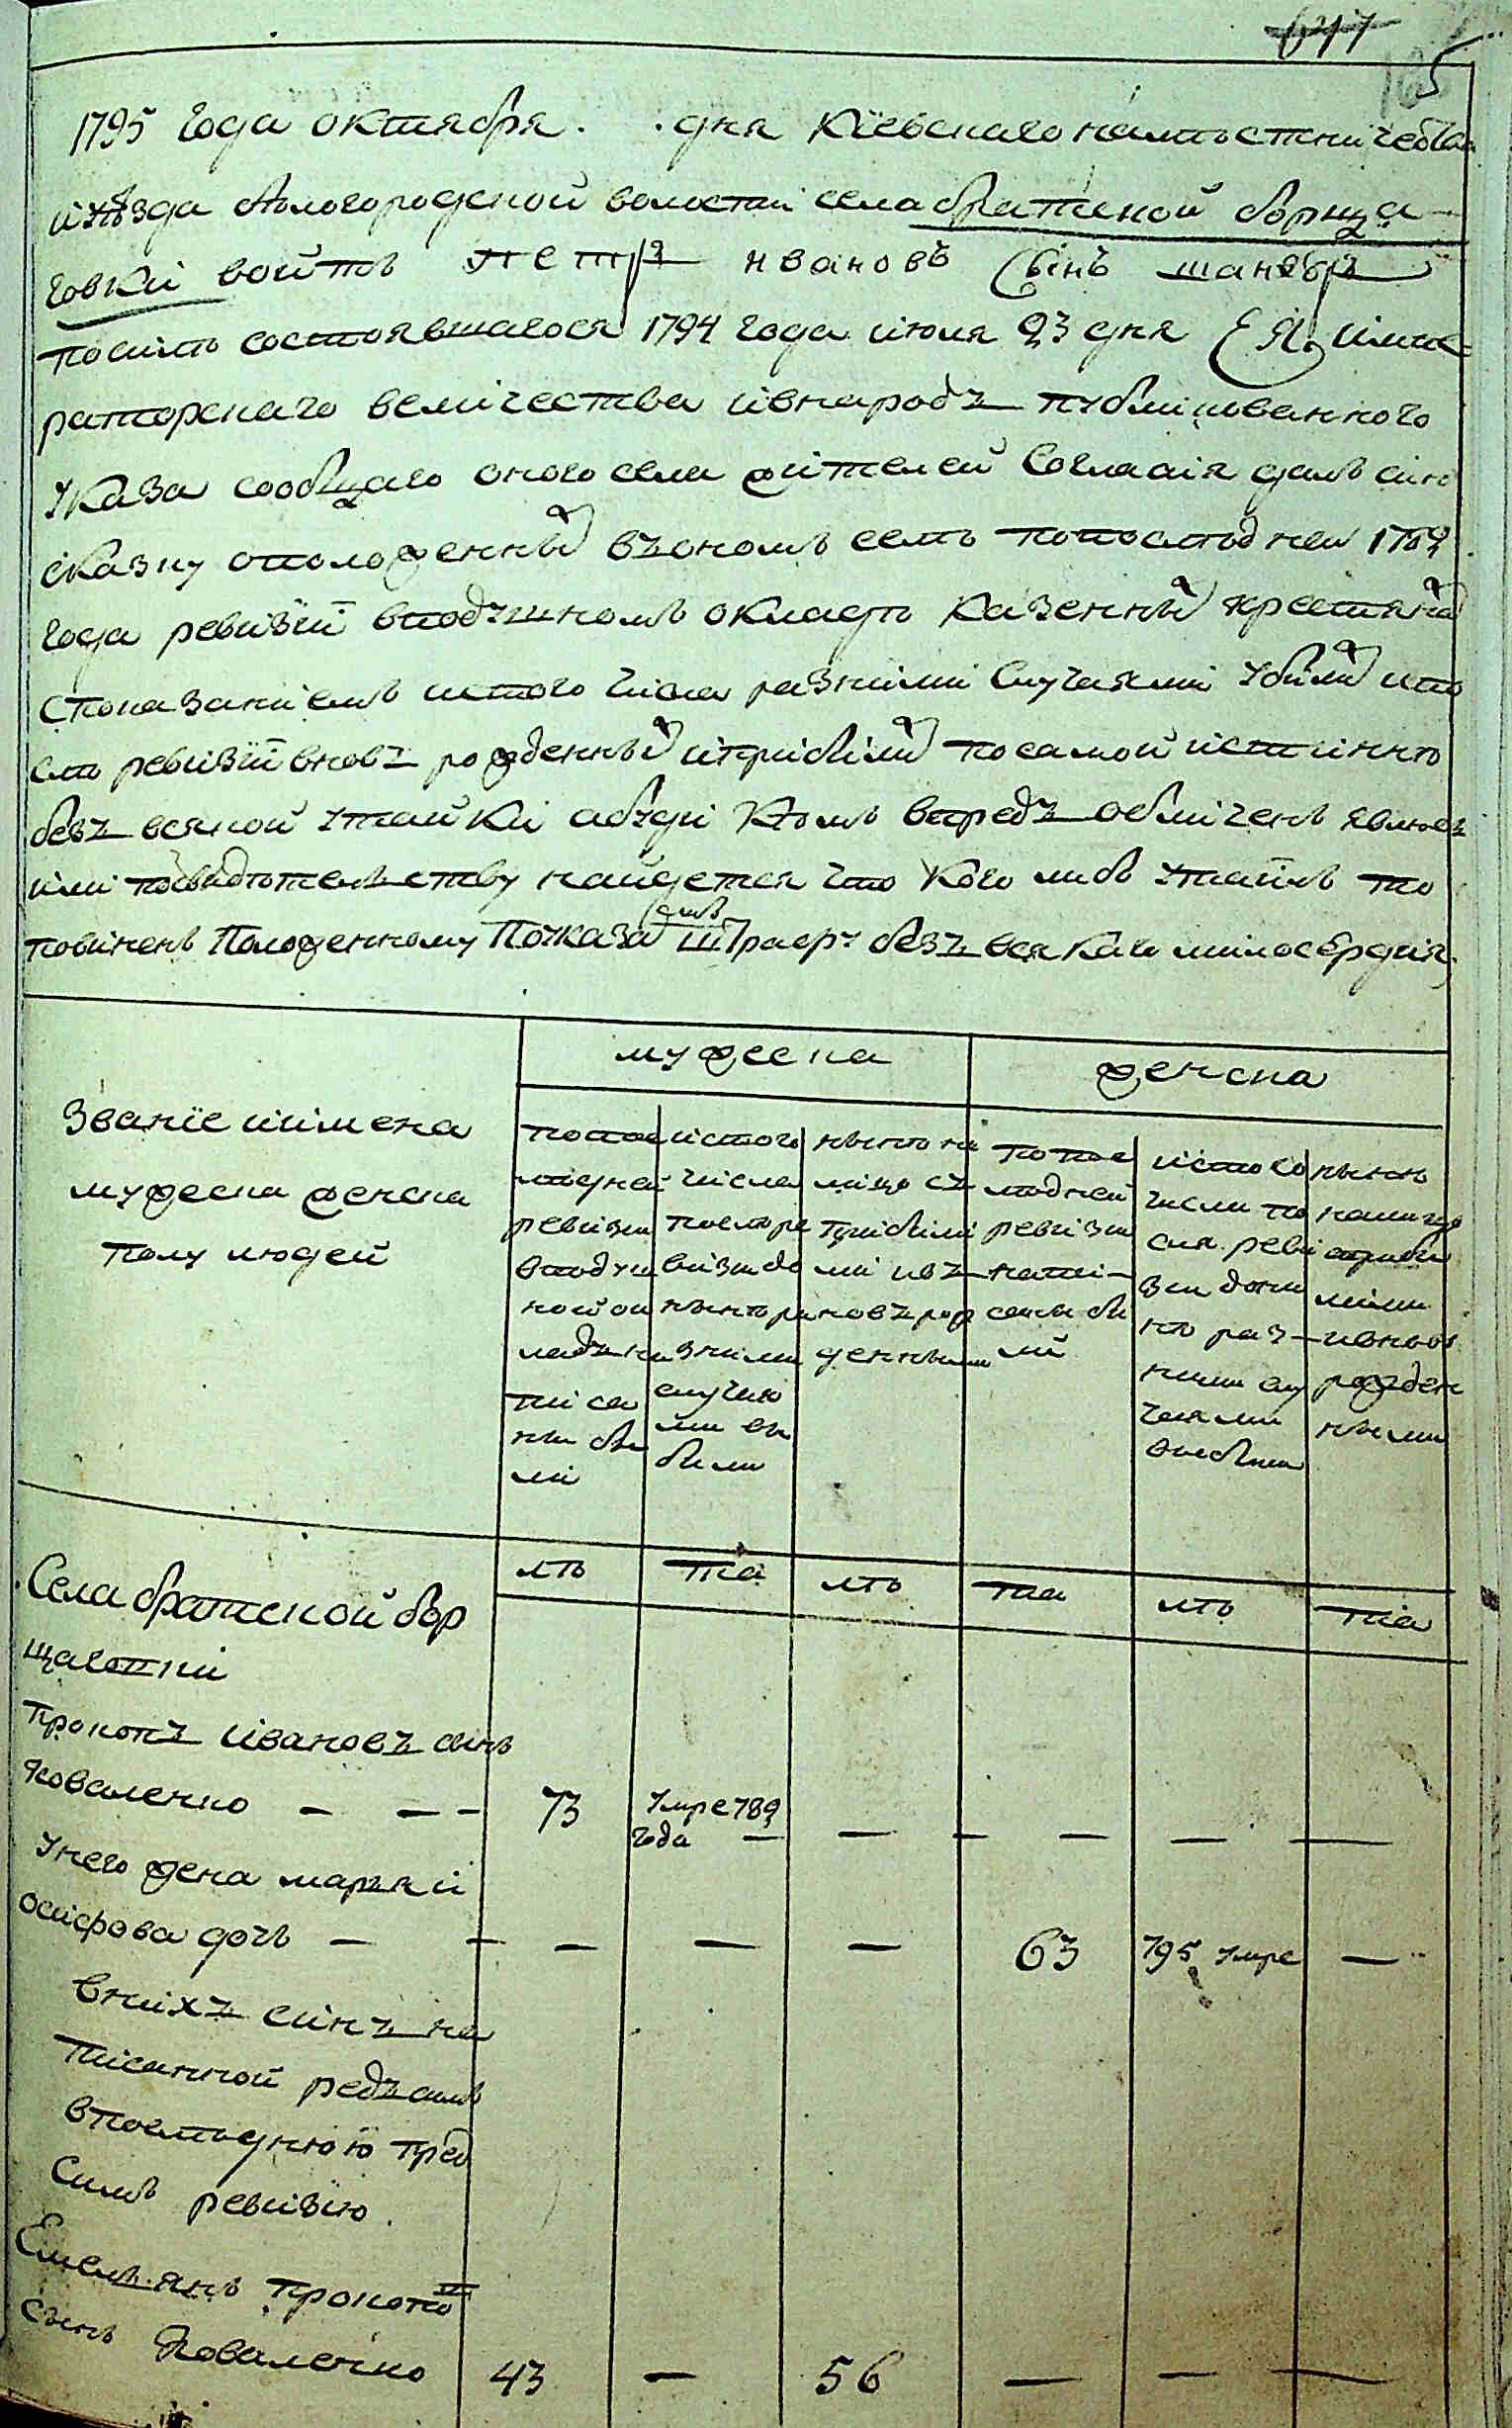 677
165
1795 года октября . . дня Кїевскаго наместничества
и уѣзда белогородской волости села братской борща-
говки войтъ петръ ивановъ сынъ
посилѣ состоявшагося 1794 года июля 23 дня ЕЯ импе=
раторскаго величества ивнародъ публикованного
Указа собщаго оного села жителей согласия далъ сию
сказку оположенных въономъ селѣ попоследней 1782
года ревизїи вподушномъ окладѣ казенных крестянах
споказаниемъ истого числа разними случаями убилих ипо
слѣ ревизїи вновъ рожденных иприбилих посамой истиннѣ
безъ всякой утайки абуди кѣмъ впредъ обличенъ явлюсъ
или посвидѣтелству найдется что кого либо утаилъ то
повиненъ положенному поуказамъ штрафу безъ всякаго милосердия
мужеска
женска
Званїе иимена
мужеска женска
полу людей
попос
лѣдней
ревизии
вподуш
ной ок
ладъ на
писа
ни би
ли
истого
числа
послѣ ре
визии до
нынѣ ра
зними
случая
ми вы
били
нынѣ на
лицо съ
прибили
ми изъ
новъ рож
денными
попос
лѣдней
ревизии
напи-
сани би
ли
истого
числа по
сля реви
зии доны
нѣ раз-
ними слу
чаями
выбили
нынѣ
налицо
сприби
лими
ивновъ
рожден
ными
лѣ та лѣ та лѣ та
Села братской бор
щаговки
Прокопъ ивановъ синъ
Коваленко — — - 73 Умре 789 года — — — — — —
Унего жена маръя и
осифова дочь — — — — — 63 795 умре —
Внихъ синъ на
писанной редъ симъ
впоследнюю пред
симъ ревизїю.
Емельянъ прокопов
сынъ Коваленко 43 — 56 — — —